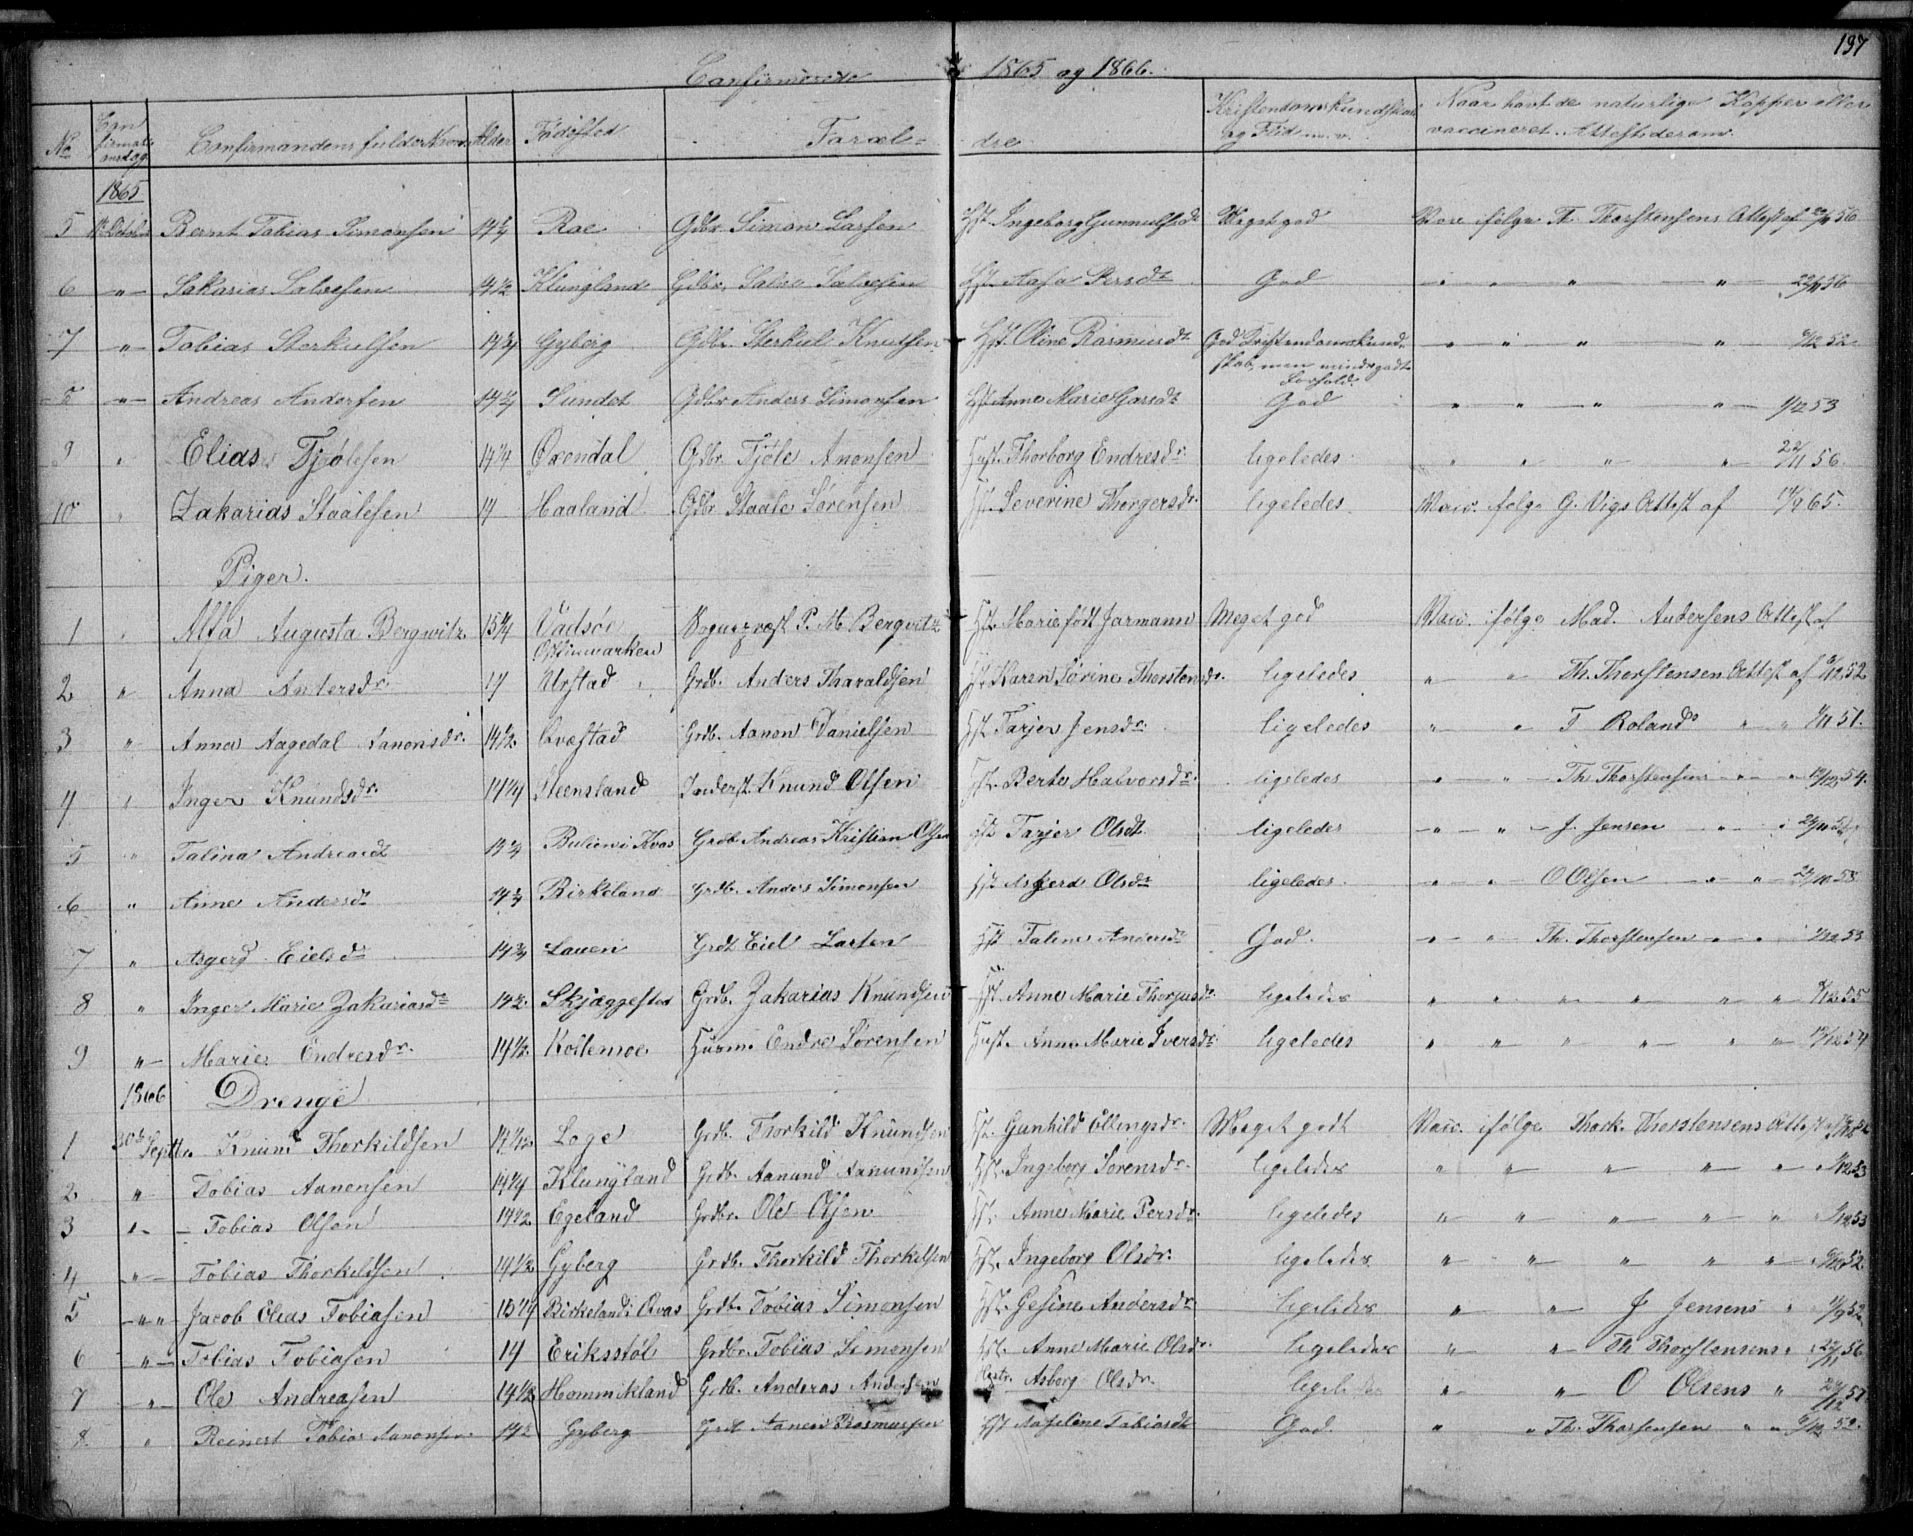 197
Confirmerede 1865 og 1866.
No Confirmationsdag Confirmandens fulde Navn Alder Fødested Foræl- dre Kristendomskundskab og Flid m. v. Naar havt de naturlige Kopper eller vaccineret. Attest derom.
1865
5 Bernt Tobias Simonsen 14 3/4 Roe Gdbr. Simon Larsen Hst. Ingeborg Gunnulfsdt Meget god Vacc. ifølge Th. Thorstensens Attest af 22/11 56
6 -"- Sakarias Salvesen 14 1/2 Klungland Gdbr. Salve Salvesen Hst. Aasa Persdt God " " " " 22/11 56
7 -"- Tobias Sterkulsen 14 3/4 Gyberg Gdbr. Sterkul Knutsen Hst. Oline Rasmusdt God Kristendomskund- " " " " 6/12 52
skab, men mindre godt
Forhold.
8 -"- Andreas Andersen 14 3/4 Sundet Gdbr Anders Simonsen Hst. Anne Marie Garsdt God " " " " 1/12 53
9 " Elias Tjølesen 14 1/4 Øxendal Gdbr. Tjøle Anonsen Hust. Thorborg Endresdr. ligeledes " " " " 22/11 56.
10 " Zakarias Staalesen 14 Haaland Gdbr. Staale Sørensen Hst. Severine Thorgersdr. ligeledes Vacc. følge G. Vigs Attest af 14/9 65.
Piger.
1 " Alfa Augusta Bergwitz 15 3/4 Vadsøe Sogneprest P. M. Bergvitz Hst. Marie født Jarmann Meget god Vacc. ifølge Mad. Andersens Attest af
Ostfinmarken
2 " Anna Andersdr. 14 Urstad Grdb. Anders Tharaldsen Hst. Karen Sørine Thorstensdr. ligeledes " " Th. Thorstensen Attest af 6/12 52
3 " Anna Aagedal Aanonsdr. 14 1/2 Qvæstad Grdb. Aanon Danielsen Hst. Tarjer Jensdr. ligeledes " " T Rolands " " 51.
4 " Inger Knudsdr. 14 1/4 Steensland Inderst. Knund Olsen Hst. Berte Halvorsdr. ligeledes " " Th Thorstensens " " 12/12 54.
5 " Talina Andreasdt 14 3/4 Buliene i Kvas Grdb. Andreas Kristian Olsen Hst Tarjer Olsdt. ligeledes " " J. Jensen " "
6 " Anne Andersdt 14 3/4 Birkeland Grdb. Anders Simonsen Hst Asgerd Olsdt ligeledes. " " O Olsen " "
7 " Asgerd Eielsdt 14 3/4 Lauen Grdb Eiel Larsen Hst Taline Andersdt God. " " Th. Thorstensen " " 1/12 53
8 " Inger Marie Zakariasdt 14 1/2 Skjæggestad Grdb. Zakarias Knundsen Hst. Anne Marie Thorjusdr. ligeledes " " " " " " 12 55
9 " Marie Endresdr. 14 1/2 Kollemoe Husm. Endre Sørensen Hust. Anne Marie Iversdr ligeledes " " " " " " 12/12 54
1866 Drenge
1 30te Septbr. Knund Thorkildsen Loge Grdb. Thorkild Knundsen Hst. Gunhild Ellingsdr. Meget godt Vacc. ifølge Thork. Thorstensens Attest af
2 " Tobias Aanensen 14 1/4 Klungland Grdb. Aanund Aanundsen Hst. Ingeborg Sørensdr. ligeledes " " " " " 1/12 53
3 " Tobias Olsen 14 1/2 Egeland Grdbr. Ole Olsen Hst. Anne Marie Persdr. ligeledes " " " " " 53
4 " Tobias Thorkildsen 14 1/2 Gyberg Grdb. Thorkild Thorkelsen Hst. Ingeborg Olsdr. ligeledes " " " " " 6/12 52
5 " Jacob Eleas Tobiasen 15 1/4 Birkeland i Qvas Grdb. Tobias Simonsen Hst. Gesine Andersdr ligeledes " " J Jensens " 52
6 " Tobias Tobiasen 14 Eriksstøl Grdbr. Tobias Simonsen Hst. Anne Marie Olsdr. ligeledes " " Th Thorstensens " 22/11 56
7 " Ole Andreasen 14 1/2 Hommekland Grdb. Anderas Andersen Asborg Olsdr. ligeledes " " O Olsens "
8 " Reinert Tobias Aanonsen 14 1/2 Gyberg Grdb Aanen Rasmussen Hst Aaseline Tobiasdt God " " Th. Thorstensen " " 6/12 52.